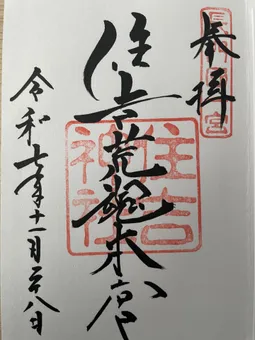 奉拝
住吉荒魂本宮
住吉神社
令和七年十一月二十八日